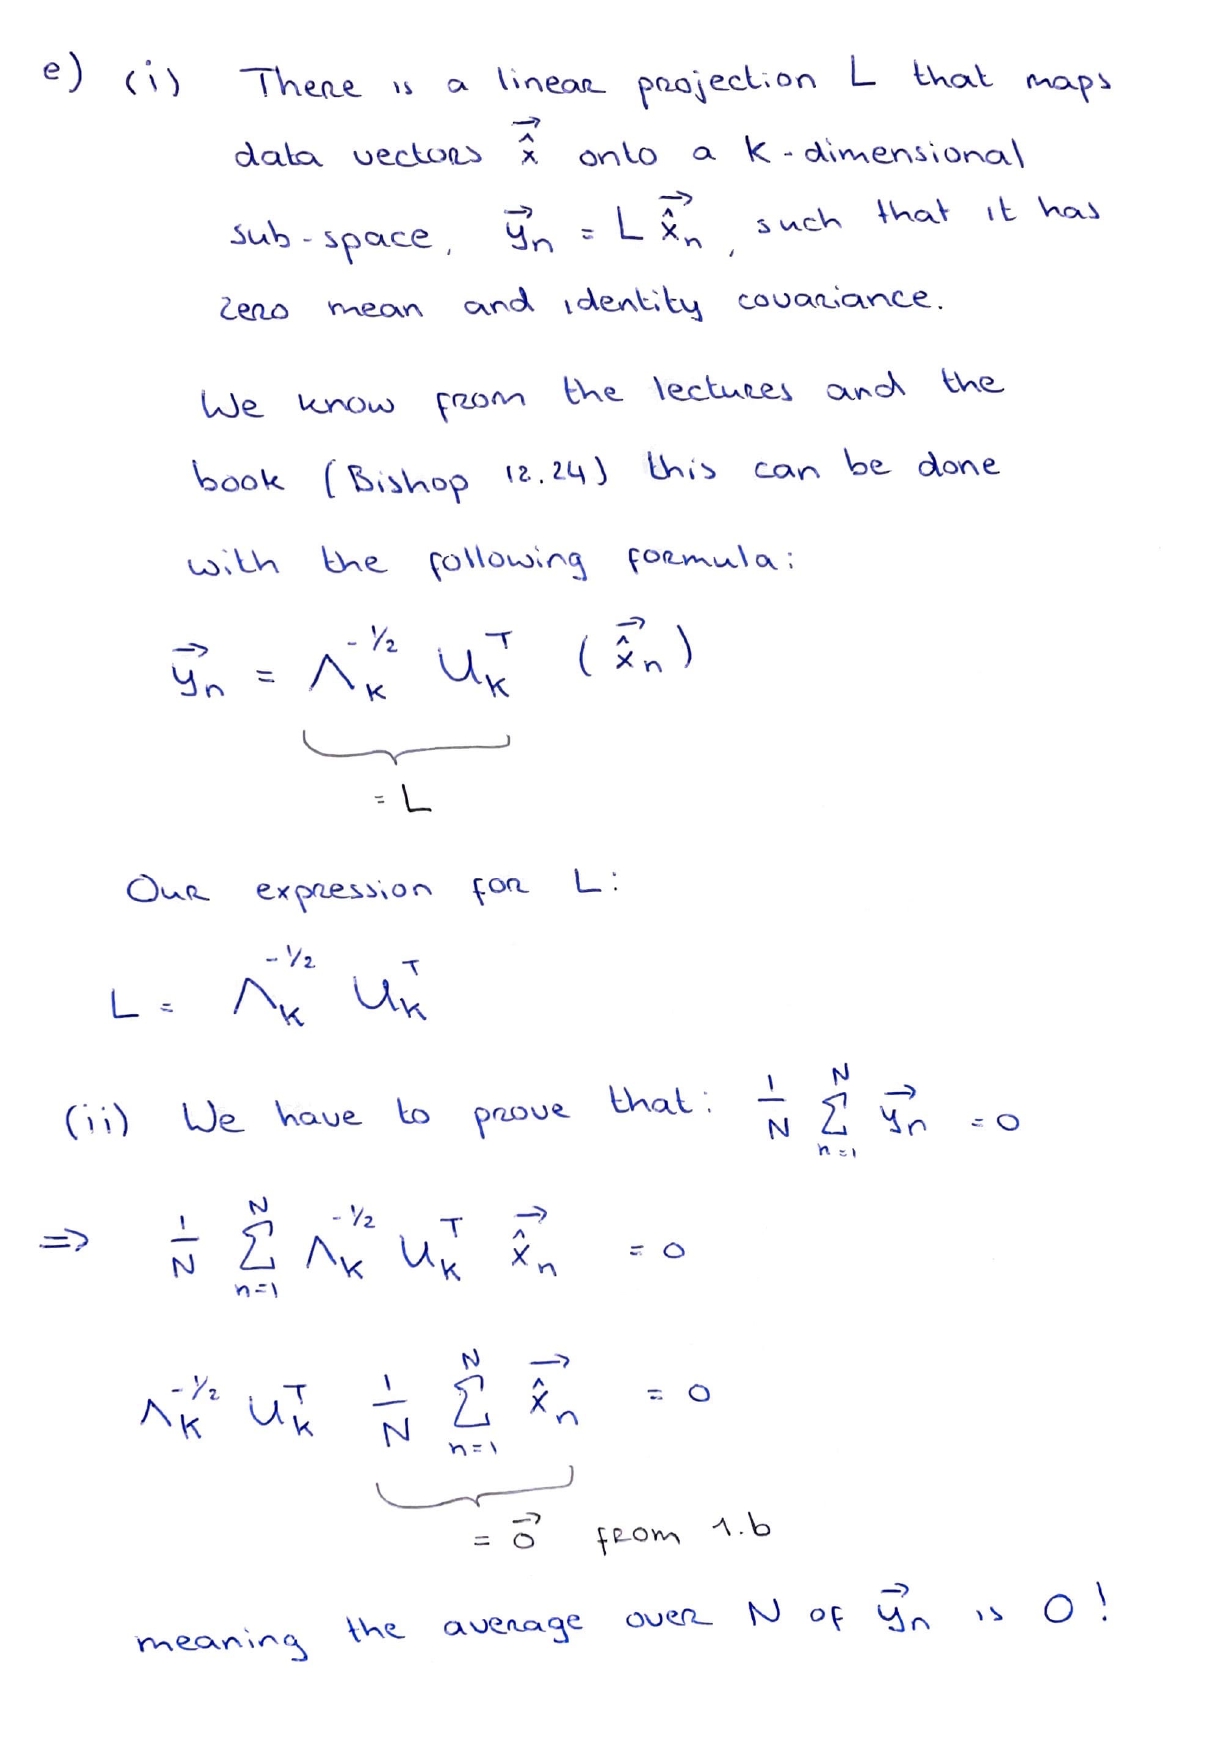 e) (i) There is a linear projection L that maps
data vectors $\vec{\hat{x}}$ onto a K-dimensional
sub-space, $\vec{y}_n = L \vec{\hat{x}}_n$, such that it has
zero mean and identity covariance.
We know from the lectures and the
book (Bishop 12.24) this can be done
with the following formula:
$\vec{y}_n = \Lambda_K^{-1/2} U_K^T (\vec{\hat{x}}_n)$
= L
Our expression for L:
$L = \Lambda_K^{-1/2} U_K^T$
(ii) We have to prove that: $\frac{1}{N} \sum_{n=1}^{N} \vec{y}_n = 0$
$\Rightarrow \frac{1}{N} \sum_{n=1}^{N} \Lambda_K^{-1/2} U_K^T \vec{\hat{x}}_n = 0$
$\Lambda_K^{-1/2} U_K^T \frac{1}{N} \sum_{n=1}^{N} \vec{\hat{x}}_n = 0$
$= \vec{0}$ from 1.b
meaning the average over N of $\vec{y}_n$ is 0!